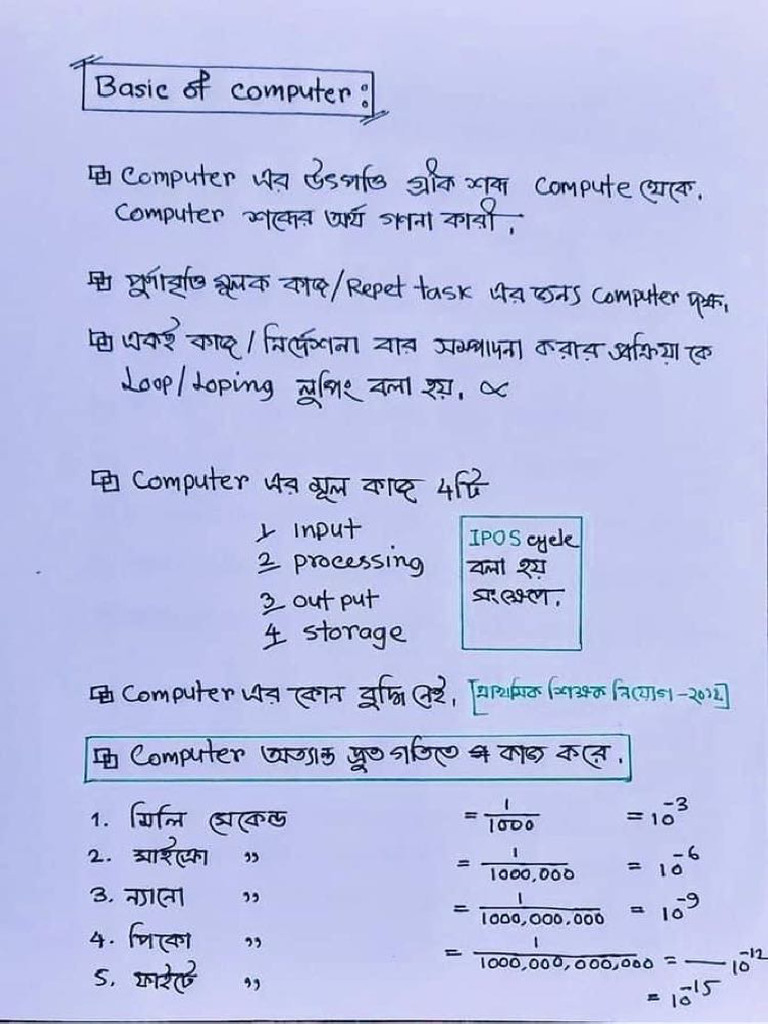 Basic of computer:
Computer এর উৎপত্তি গ্রীক শব্দ Compute থেকে.
Computer শব্দের অর্থ গণনা কারী.
পুর্ণাবৃত্তি মূলক কাজ/Repet task এর জন্য Computer দক্ষ.
একই কাজ/নির্দেশনা বার সম্পাদনা করার প্রক্রিয়া কে
Loop/Loping লুপিং বলা হয়. ∝
Computer এর মূল কাজ 4টি
1 input
2 processing
3 out put
4 storage
IPOS cycle
বলা হয়
সংক্ষেপে.
Computer এর কোন বুদ্ধি নেই. [প্রাথমিক শিক্ষক নিয়োগ -২০১২]
Computer অত্যান্ত দ্রুত গতিতে কাজ করে.
1. মিলি সেকেন্ড = 1/1000 = 10⁻³
2. মাইক্রো ,, = 1/1000,000 = 10⁻⁶
3. ন্যানো ,, = 1/1000,000,000 = 10⁻⁹
4. পিকো ,, = 1/1000,000,000,000 = — 10⁻¹²
5. ,, = 10⁻¹⁵